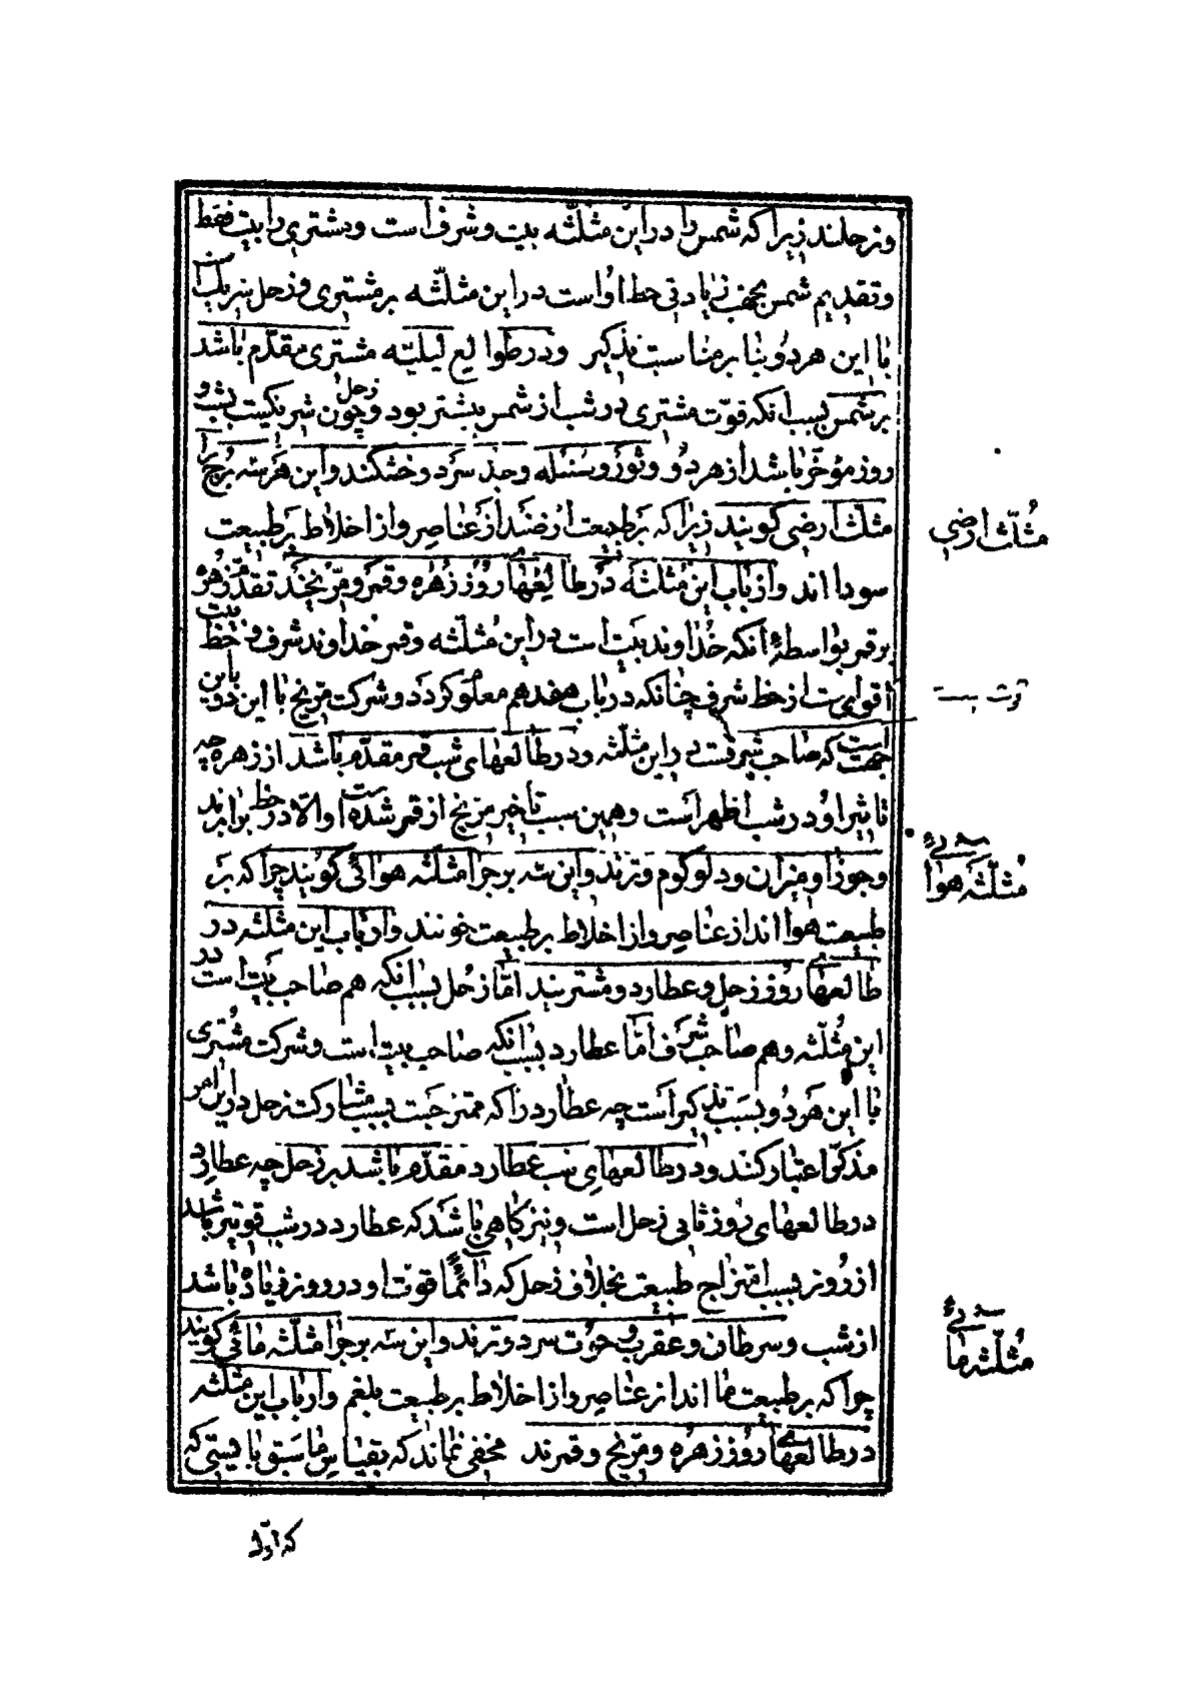 وزحلند زیرا که شمس را در این مثلّثه بیت و شرف است و مشتری را بیت فقط
و تقدیم شمس بجهت زیادتی حظ او است در این مثلّثه بر مشتری و زحل شریک است
با این هر دو بنا بر مناسبت تذکیر و در طوالع لیلیّه مشتری مقدّم باشد
بر شمس بسبب آنکه قوّت مشتری در شب از شمس بیشتر بود و چون زحل شریکیست بشب و
روز مؤخّر باشد از هر دو و ثور و سنبله و جدی سرد و خشکند و این هر سه برج را
مثلّث ارضی گویند زیرا که بر طبیعت ارضند از عناصر و از اخلاط بر طبیعت
سودا اند و ارباب این مثلثه در طالعهای روز زهره و قمر و مرّیخند تقدّم زهره
بر قمر بواسطهٔ آنکه خداوند بیت است در این مثلّثه و قمر خداوند شرف و حظ بیت
اقوی است از حظ شرف چنانکه در باب هفدهم معلوم گردد و شرکت مرّیخ با این دو باین
جهت است که صاحب شرفست در این مثلّثه و در طالعهای شب قمر مقدّم باشد از زهره چه
تاثیر او در شب اظهر است و همین سبب تأخیر مریخ از قمر شده است و الّا در حظ برابرند
و جوزا و میزان و دلو گرم و ترند و این سه برج را مثلّثه هوائی گویند چرا که بر
طبیعت هوا اند از عناصر و از اخلاط بر طبیعت خونند و ارباب این مثلثه در
طالعهای روز زحل و عطارد و مشترینید امّا زحل بسبب آنکه هم صاحب بیت است در
این مثلّثه و هم صاحب شرف امّا عطارد بسبب آنکه صاحب بیت است و شرکت مشتری
با این هر دو بسبب تذکیر است چه عطارد را که ممتزجست بسبب مشارکت زحل در این امر
مذکّر اعتبار کنند و در طالعهای شب عطارد مقدّم باشد بر زحل چه عطارد
در طالعهای روز ثانی زحل است و نیز گاهی باشد که عطارد در شب قویتر باشد
از روز بسبب امتزاج طبیعت بخلاف زحل که دائمًا قوّت او در روز زیاده باشد
از شب و سرطان و عقرب و حوت سرد و ترند و این سه برج را مثلّثه مائی گویند
چرا که بر طبیعت ما اند از عناصر و از اخلاط بر طبیعت بلغم و ارباب این مثلثه
در طالعهای روز زهره و مرّیخ و قمرند مخفی نماند که بقیاس ما سبق بایستی که
مثلّث ارضی
قوت بیت
مثلّثه هوائی
مثلّثه مائی
که اوّل